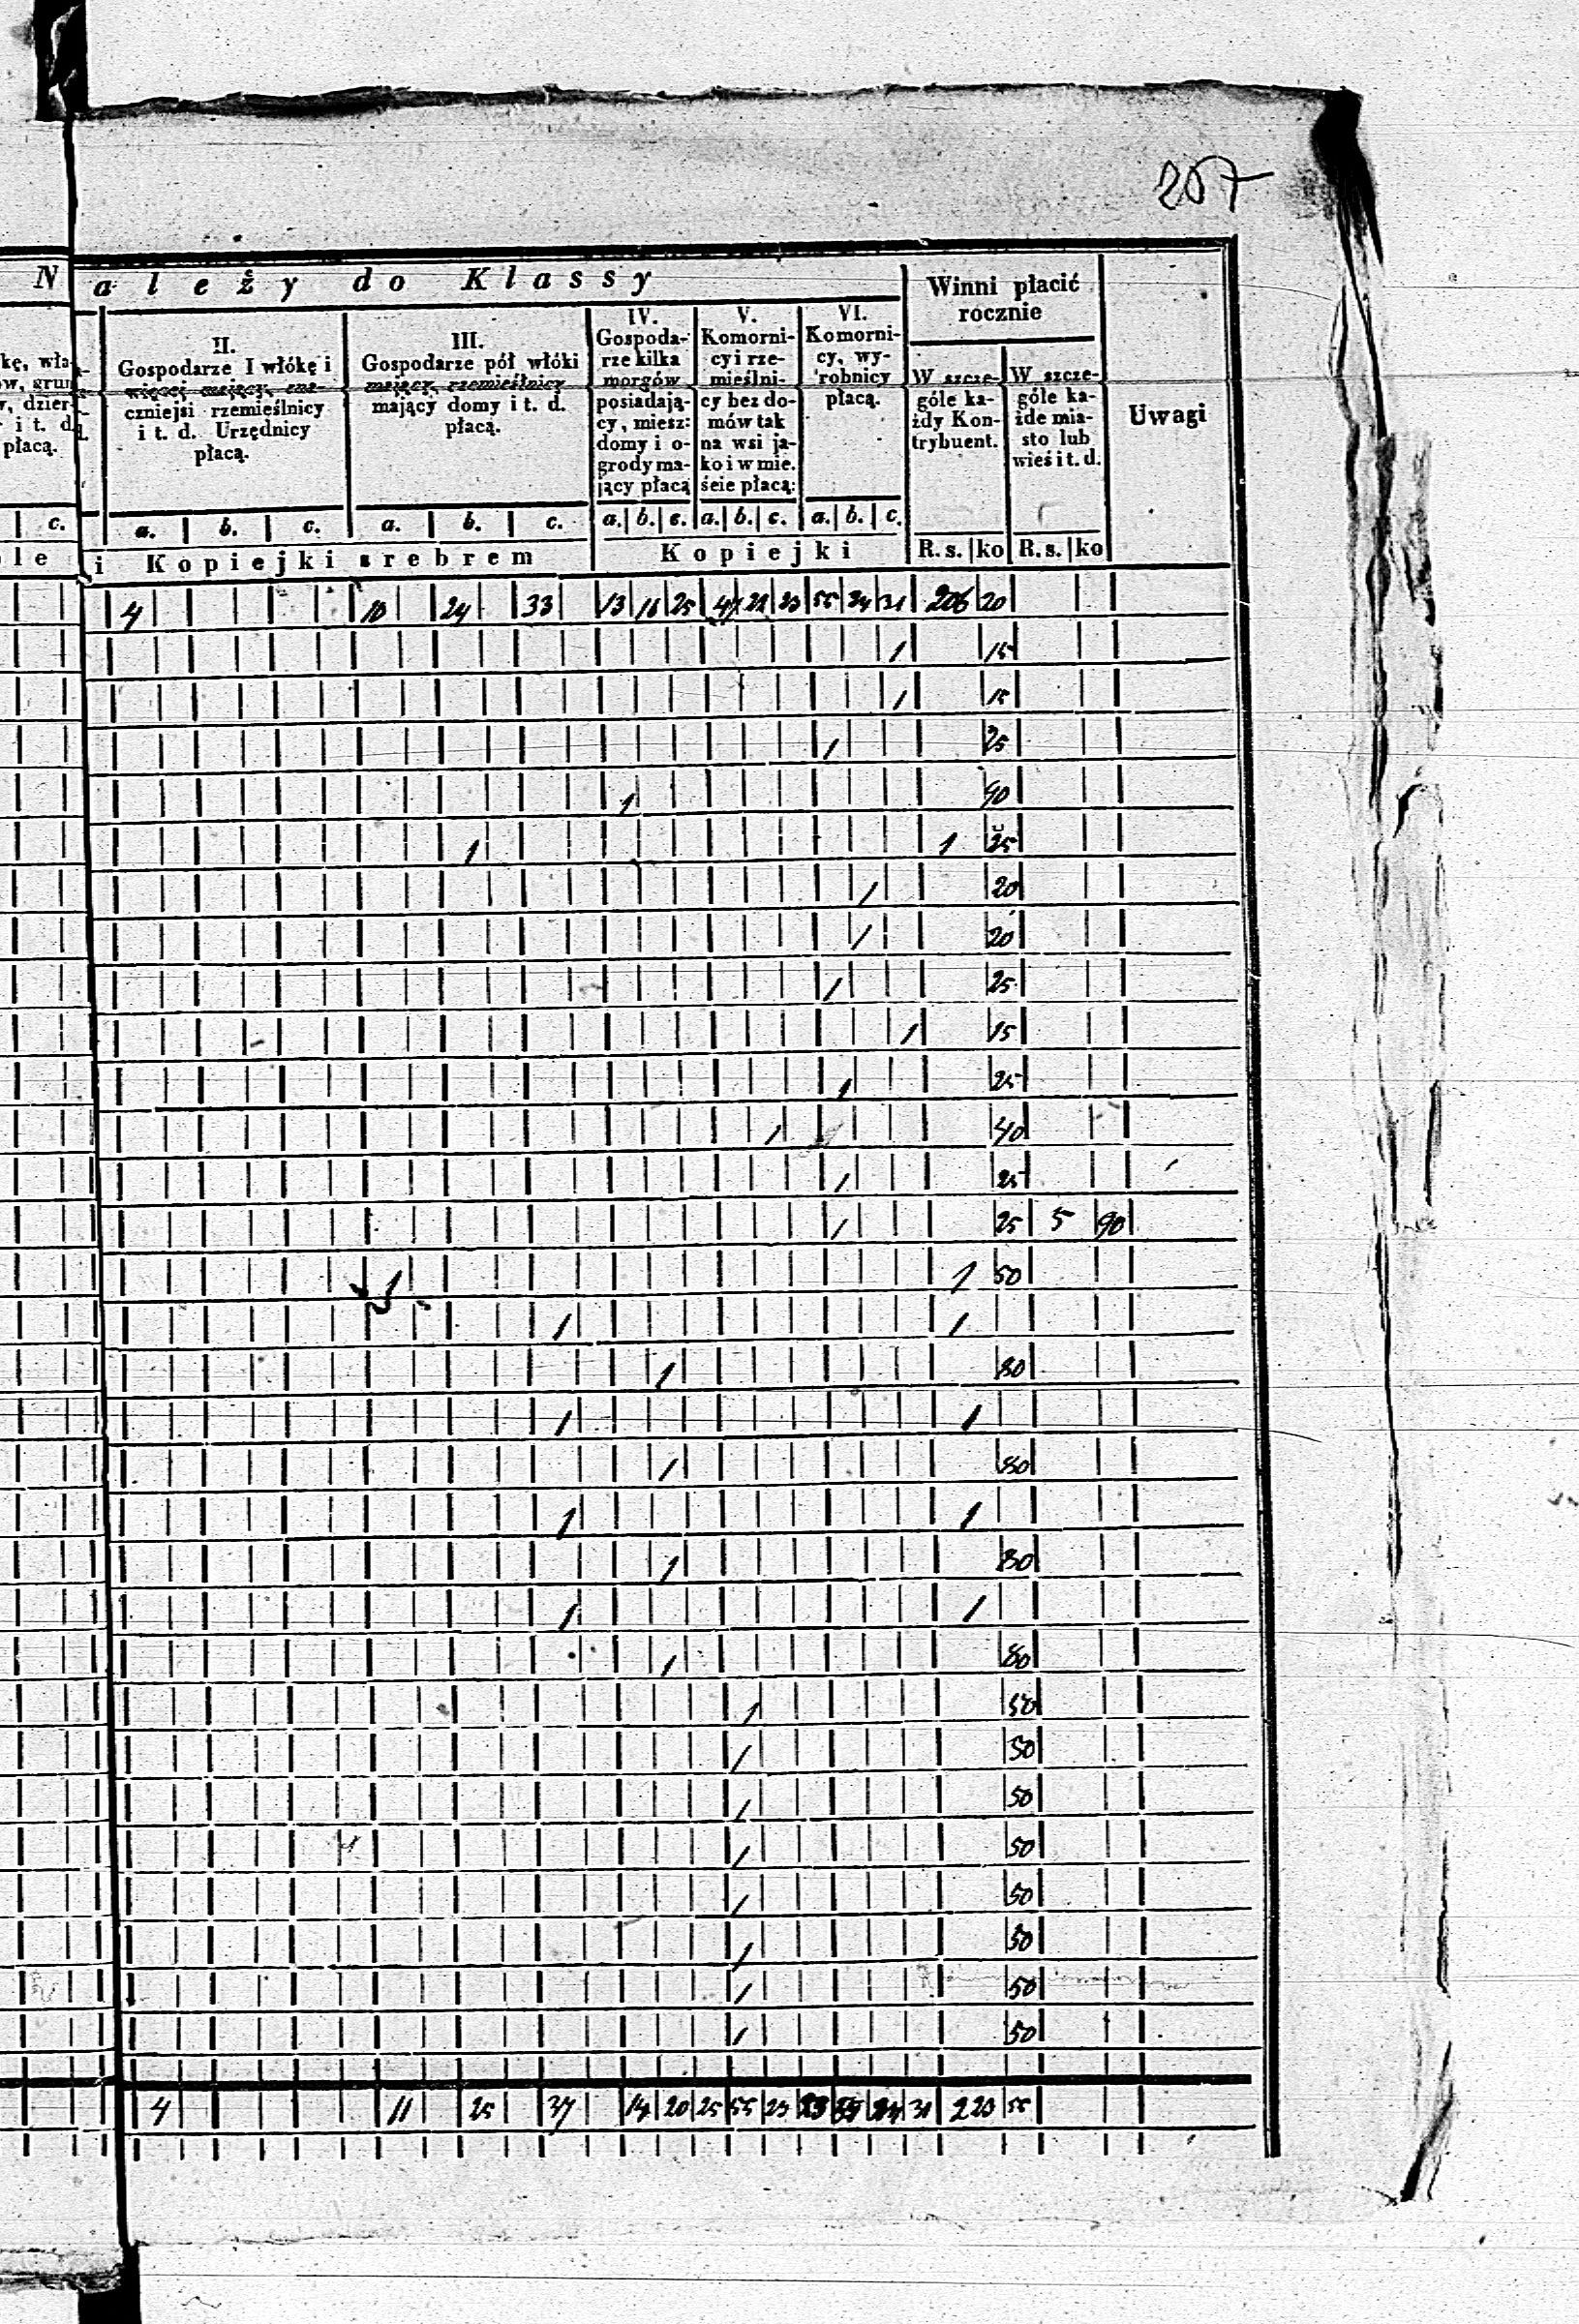 207
N ależy do Klassy
Winni płacić
rocznie
Uwagi
kę, wła-
ów, grun
w, dzier-
i t. d.
płacą.
II.
Gospodarze I włókę i
więcej mający, zna-
czniejsi rzemieślnicy
i t. d. Urzędnicy
płacą.
III.
Gospodarze pół włóki
mający, rzemieślnicy
mający domy i t. d.
płacą.
IV.
Gospoda-
rze kilka
morgów
posiadają-
cy, miesz:
domy i o-
grody ma-
jący płacą
V.
Komorni-
cy i rze-
mieślni-
cy bez do-
mów tak
na wsi ja-
ko i w mie.
ście płacą:
VI.
Komorni-
cy, wy-
robnicy
płacą.
W szcze-
góle ka-
żdy Kon-
trybuent.
W szcze-
góle ka-
żde mia-
sto lub
wieś i t. d.
c. a. b. c. a. b. c. a. b. c. a. b. c. a. b. c.
le i Kopiejki srebrem Kopiejki R. s. ko R. s. ko
4 10 24 33 13 16 25 47 22 23 55 24 31 206 20
1 15
1 15
1 25
1 40
1 1 25
1 20
1 20
1 25
1 15
1 25
1 40
1 25
1 25 5 90
1 1 50
1 1
1 80
1 1
1 80
1 1
1 80
1 1
1 80
1 50
1 50
1 50
1 50
1 50
1 50
1 50
1 50
4 11 25 37 14 20 25 55 23 23 31 223 55